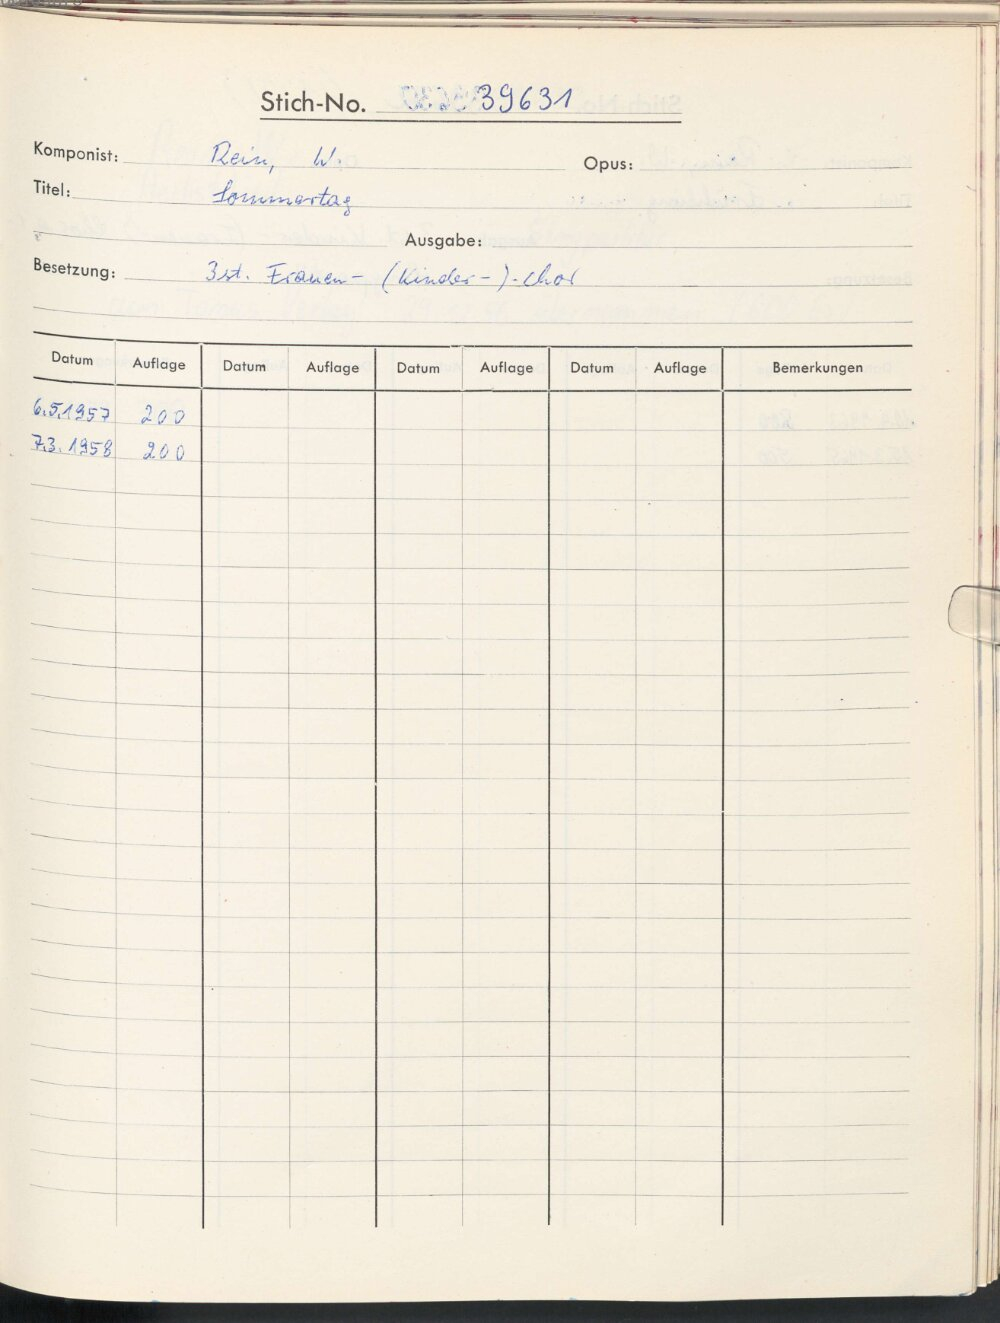 Stich-No. 39631
Komponist: Rein, W. Opus:
Titel: Sommertag
Ausgabe:
Besetzung: 3st. Frauen- (Kinder-)-chor
Datum Auflage Datum Auflage Datum Auflage Datum Auflage Bemerkungen
6.5.1957 200
7.3.1958 200